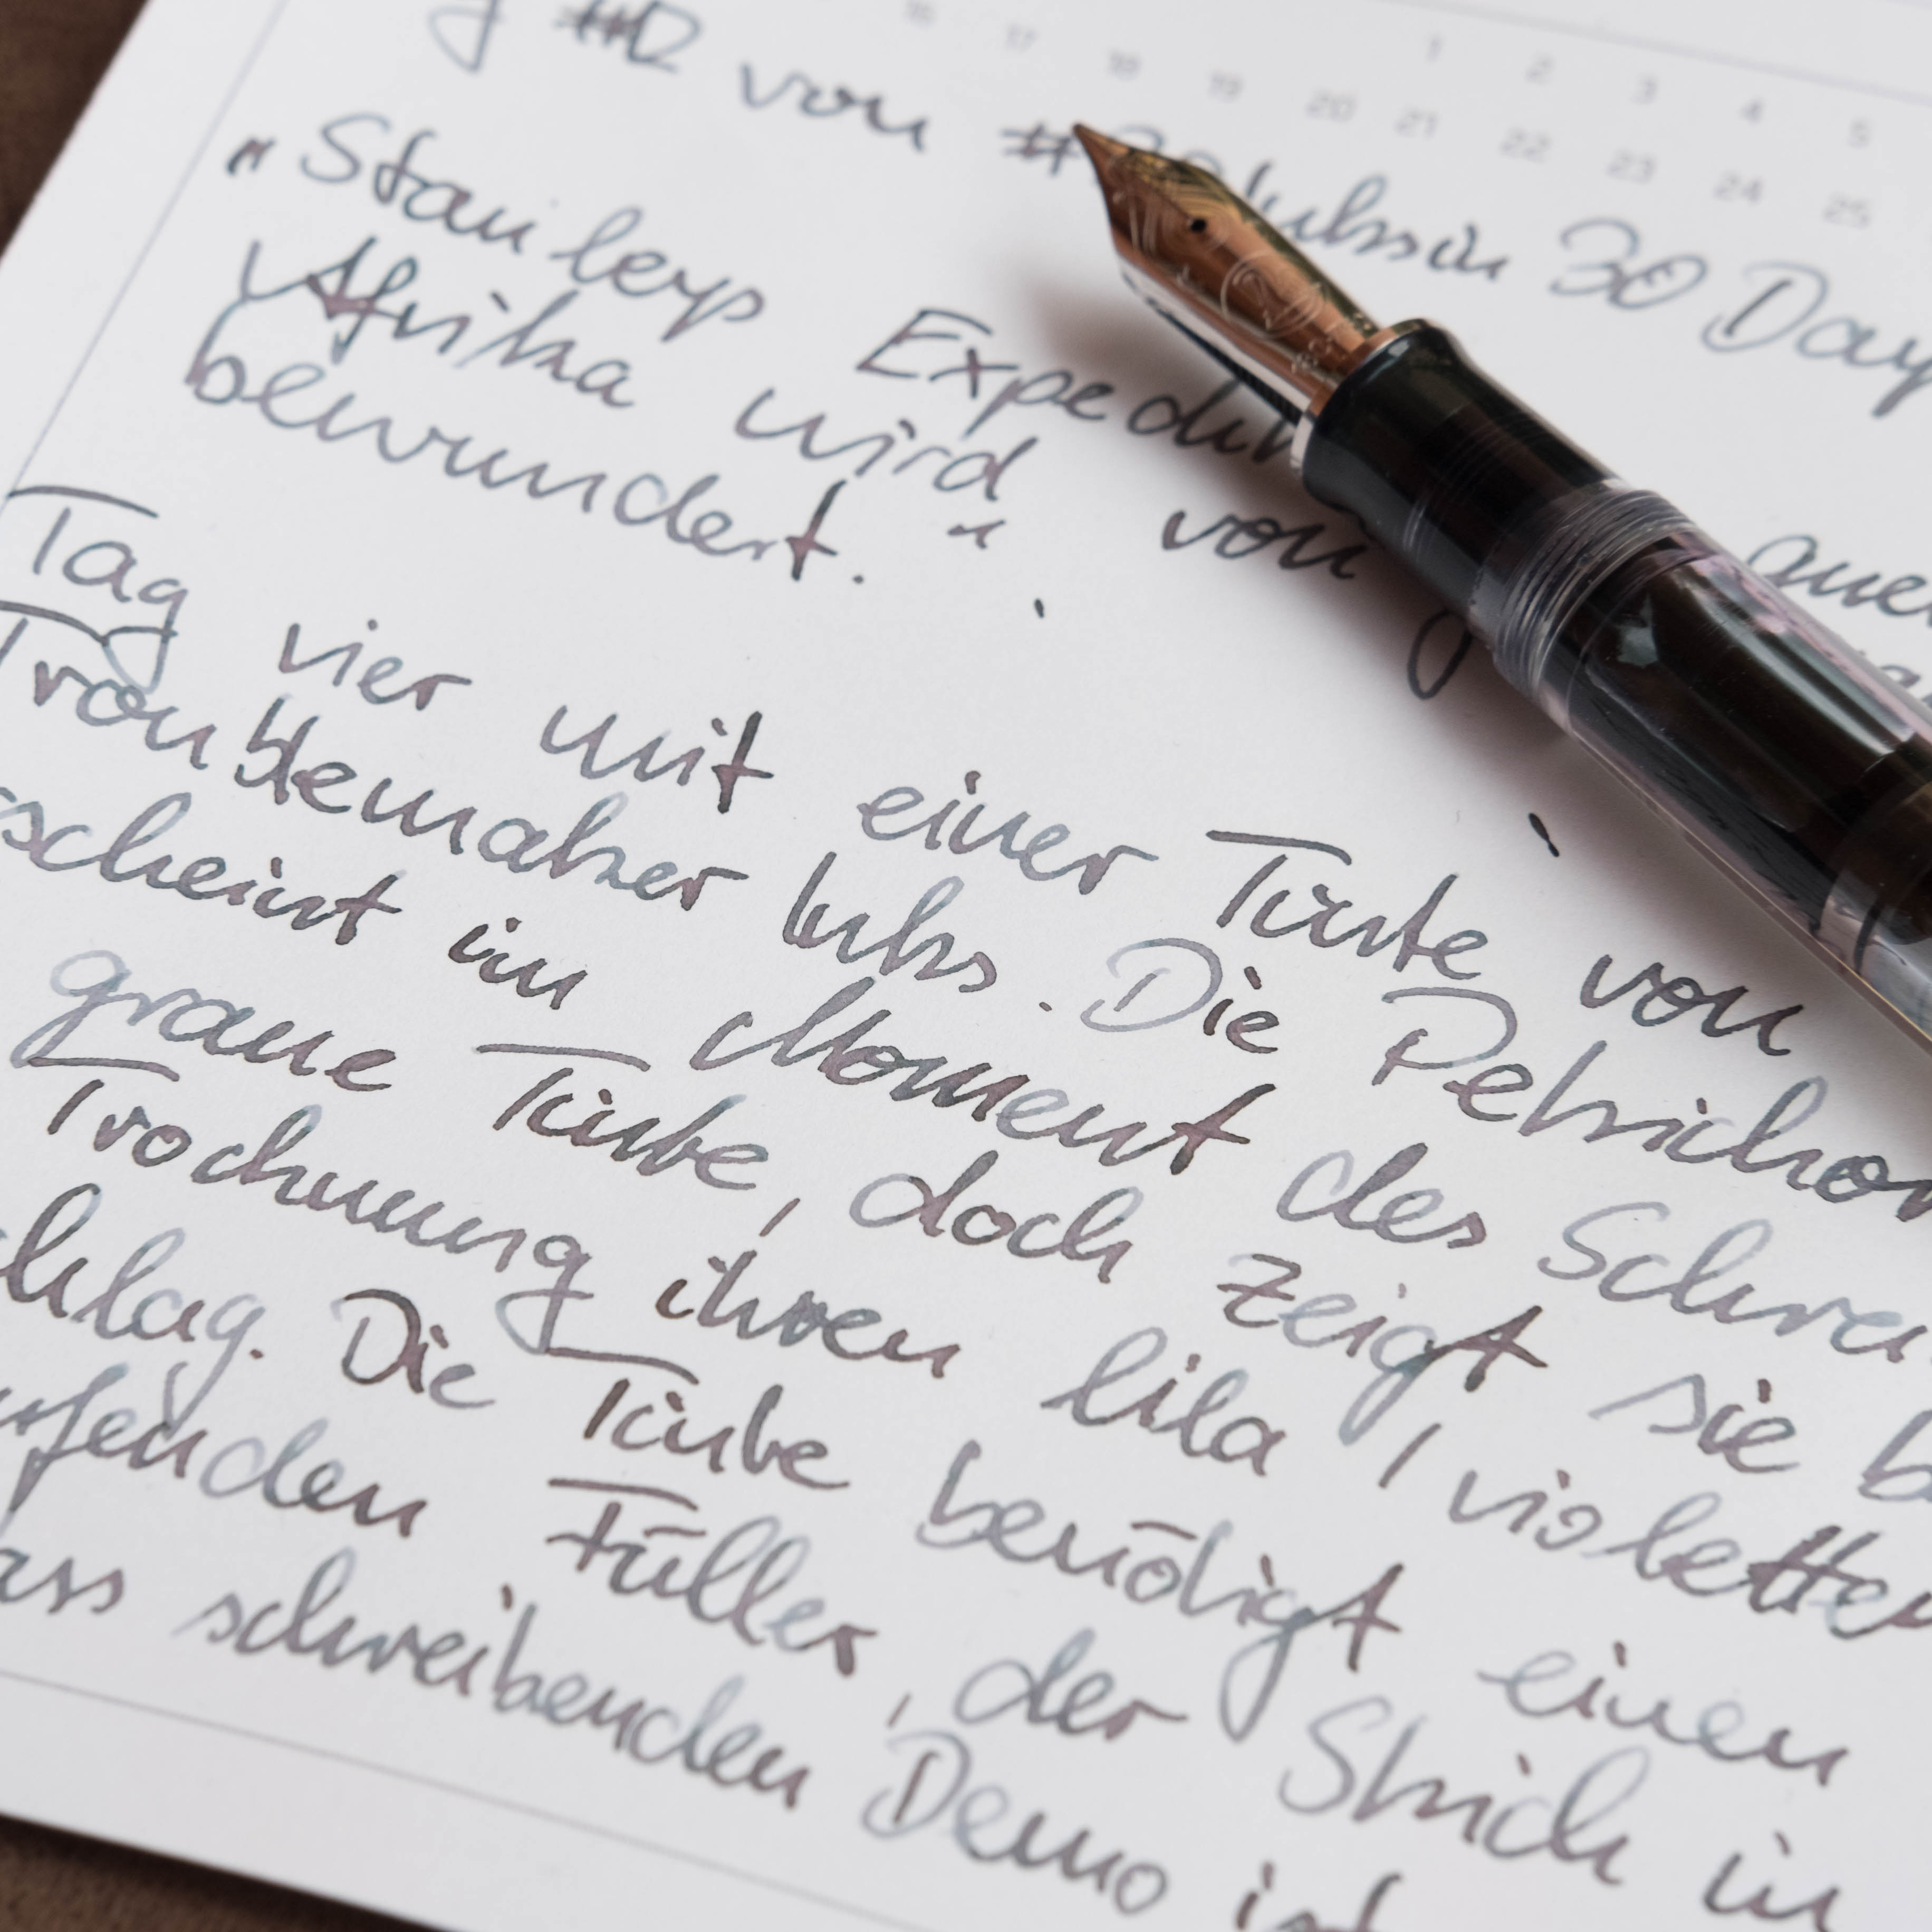 1 2 3 4 5
16 17 18 19 20 21 22 23 24 25
#2 von # Inksin30Day
„Stanleys Expedi quer
Afrika wird von
bewundert.“
Tag vier mit einer Tinte von
Troublemaker Inks. Die Petrichor
scheint im Moment des Schrei
graue Tinte, doch zeigt sie b
Trocknung ihren lila / violetten
hlag. Die Tinte benötigt einen
ufenden Füller, der Strich in
ass schreibenden Demo ist